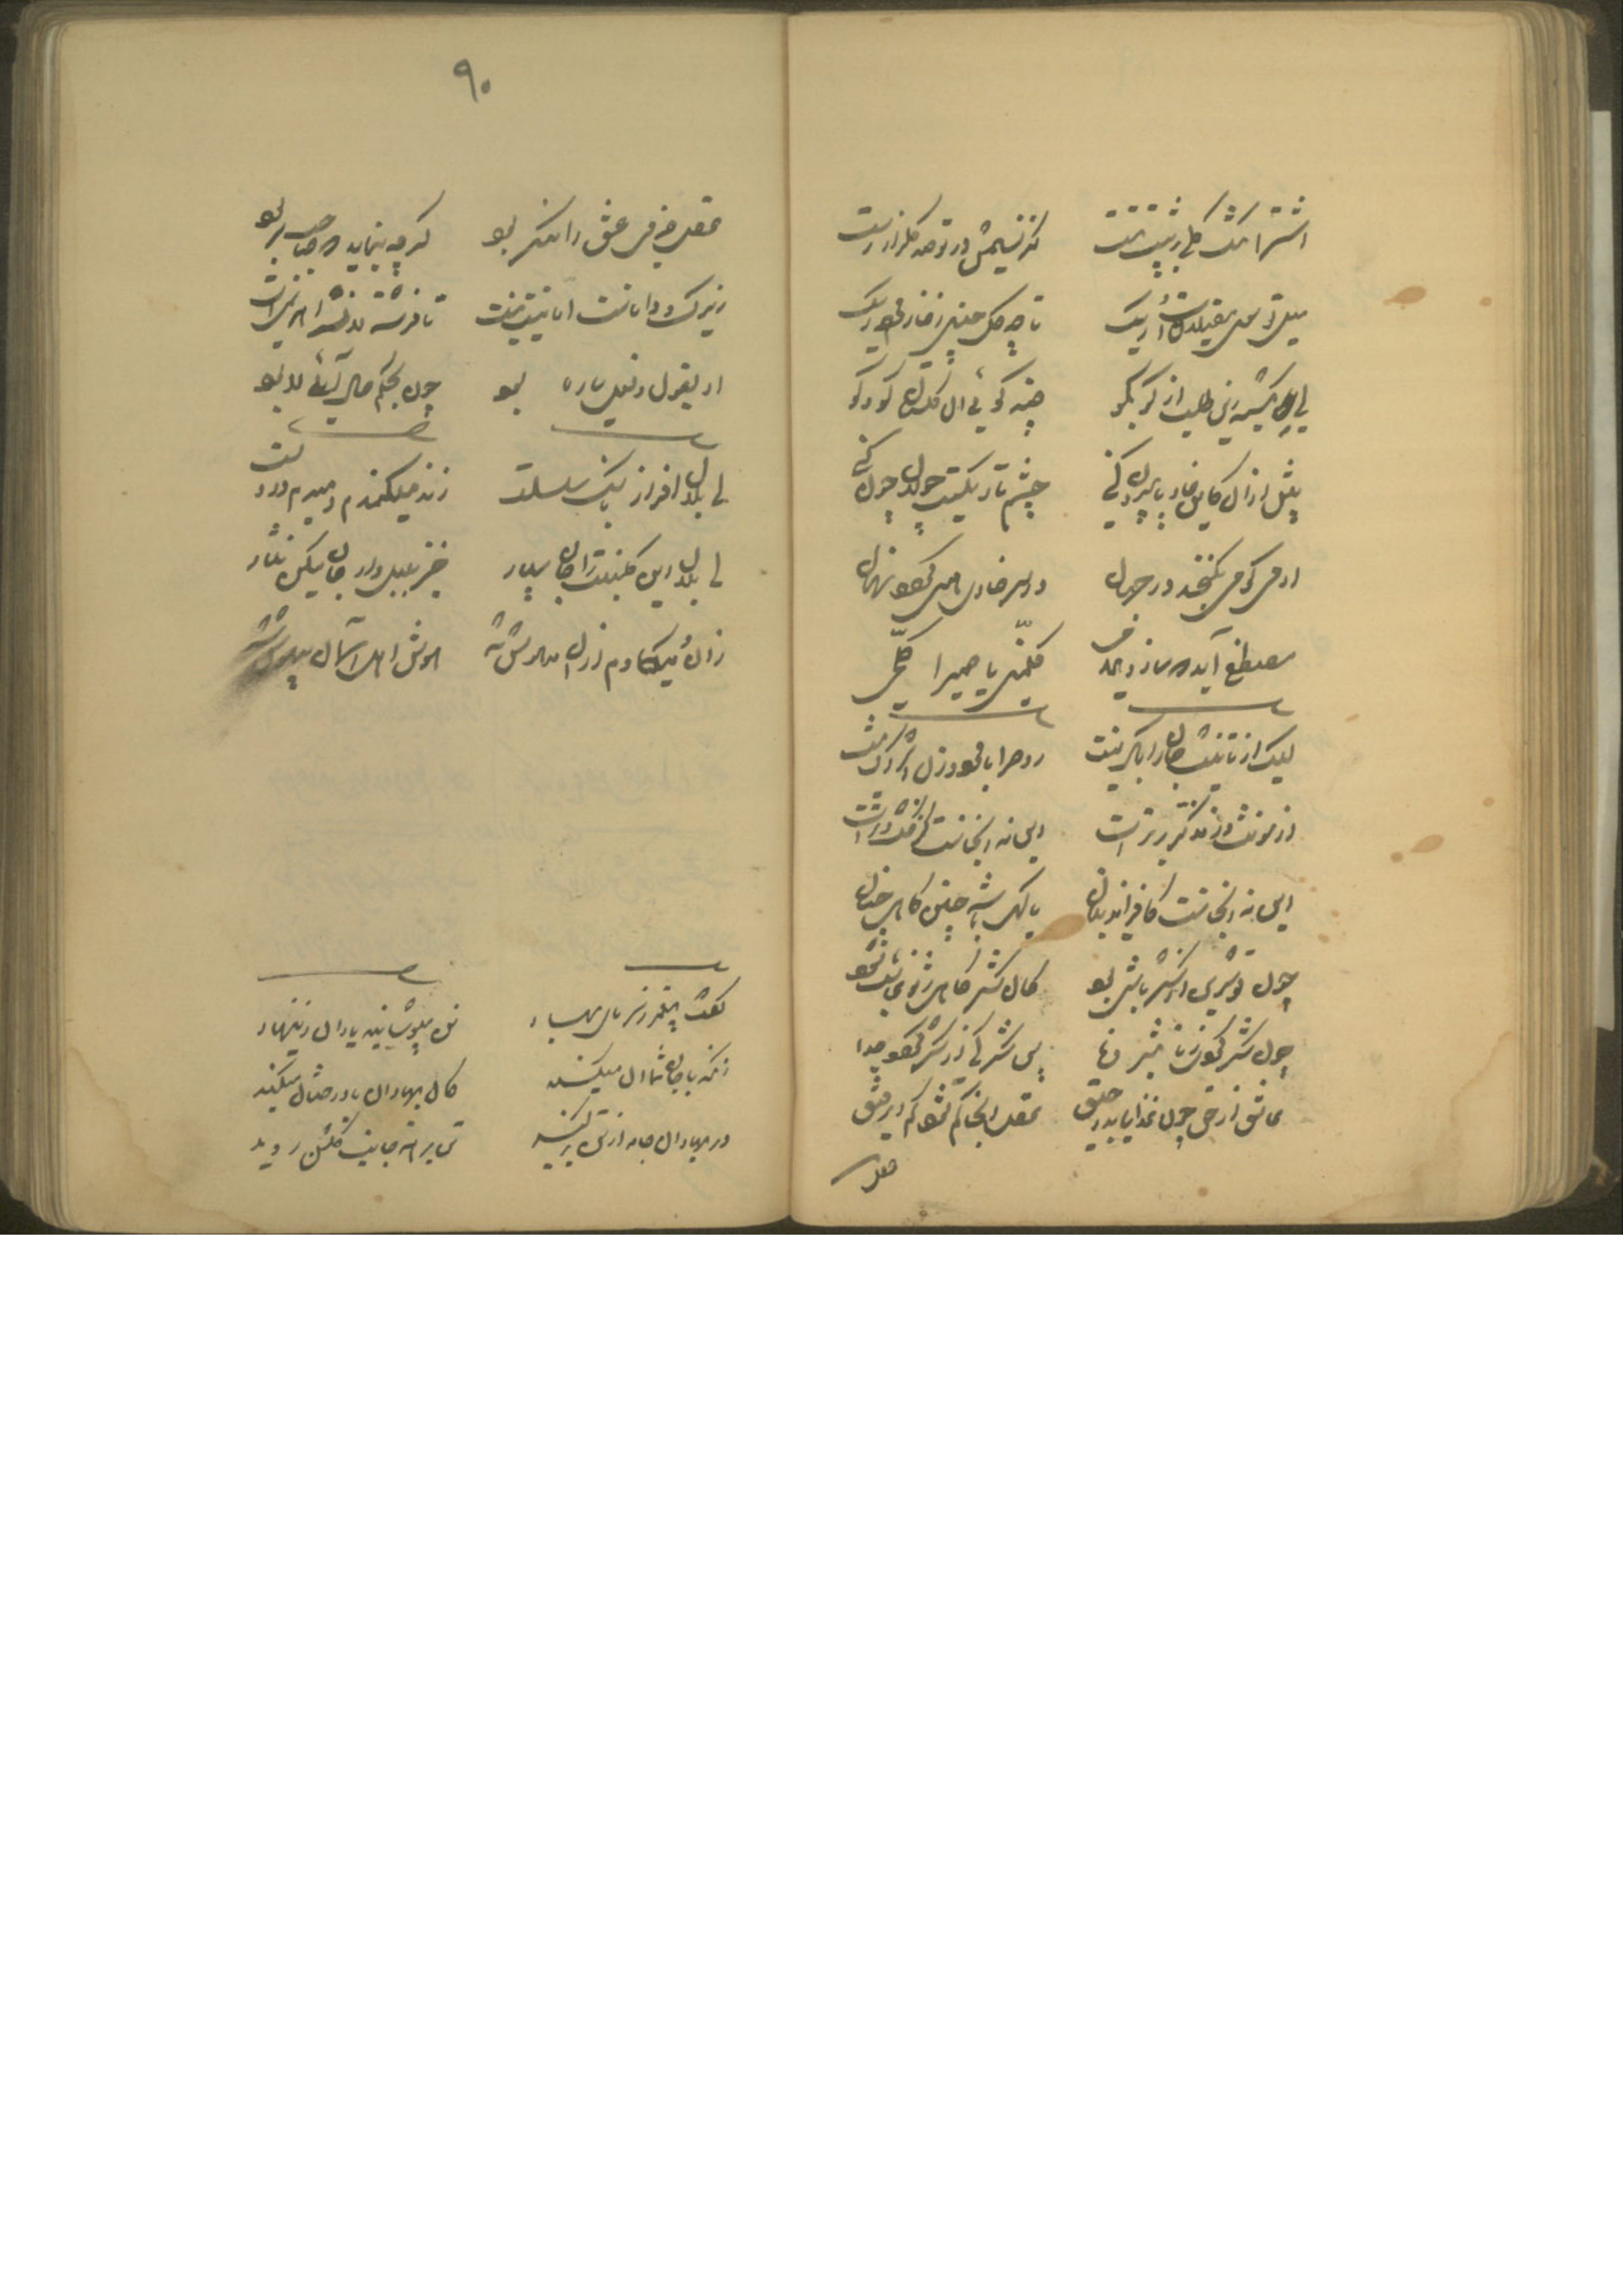 اشترا تنگ گلی بر پشت تست کز نسیمش در تو صد گلزار رست
میل تو سوی مغیلانست و ریگ تا چه گل چینی ز خار مرده ریگ
ای بگشته زین طلب از کو بکو چند گوئی آن گلستان کو و کو
پیش از آن کاین خار پا بیرون کنی چشم تاریکست جولان چون کنی
آدمی کو می نگنجد در جهان در سر خاری همی گردد نهان
مصطفی آمد که سازد همدمی کلمینی یا حمیرا کلمی
لیک از تانیث جانرا باک نیست روح را با مرد و زن اشراک نیست
از مونث وز مذکر برتر است این نه آنجانست کز خشک و تر است
این نه آنجانست کافزاید ز نان یا گهی باشد چنین گاهی چنان
چون تو شیرین از شکر باشی بود کان شکر گاهی ز تو غایب شود
چون شکر گردی ز تاثیر وفا پس شکر کی از شکر گردد جدا
عاشق از حق چون غذا یابد رحیق عقل آنجا گم شود گم ای رفیق
عقل
۹۰
عقل جزوی عشق را منکر بود گرچه بنماید که صاحب سر بود
زیرک و داناست اما نیست نیست تا فرشته لا نشد اهرمنی است
او بقول و فعل یار ما بود چون بحکم حال آئی لا بود
ای بلال افراز بانگ سلسلت
ای بلال ای گلبنت را جان سپار خیز بلبل وار جان میکن نثار
زان دمی کادم از آن مدهوش گشت هوش اهل آسمان بیهوش گشت
گفت پیغمبر ز سرمای بهار تن مپوشانید یاران زینهار
زانکه با جان شما آن میکند کان بهاران با درختان میکند
در بهاران جامه از تن برکنید تن برهنه جانب گلشن روید